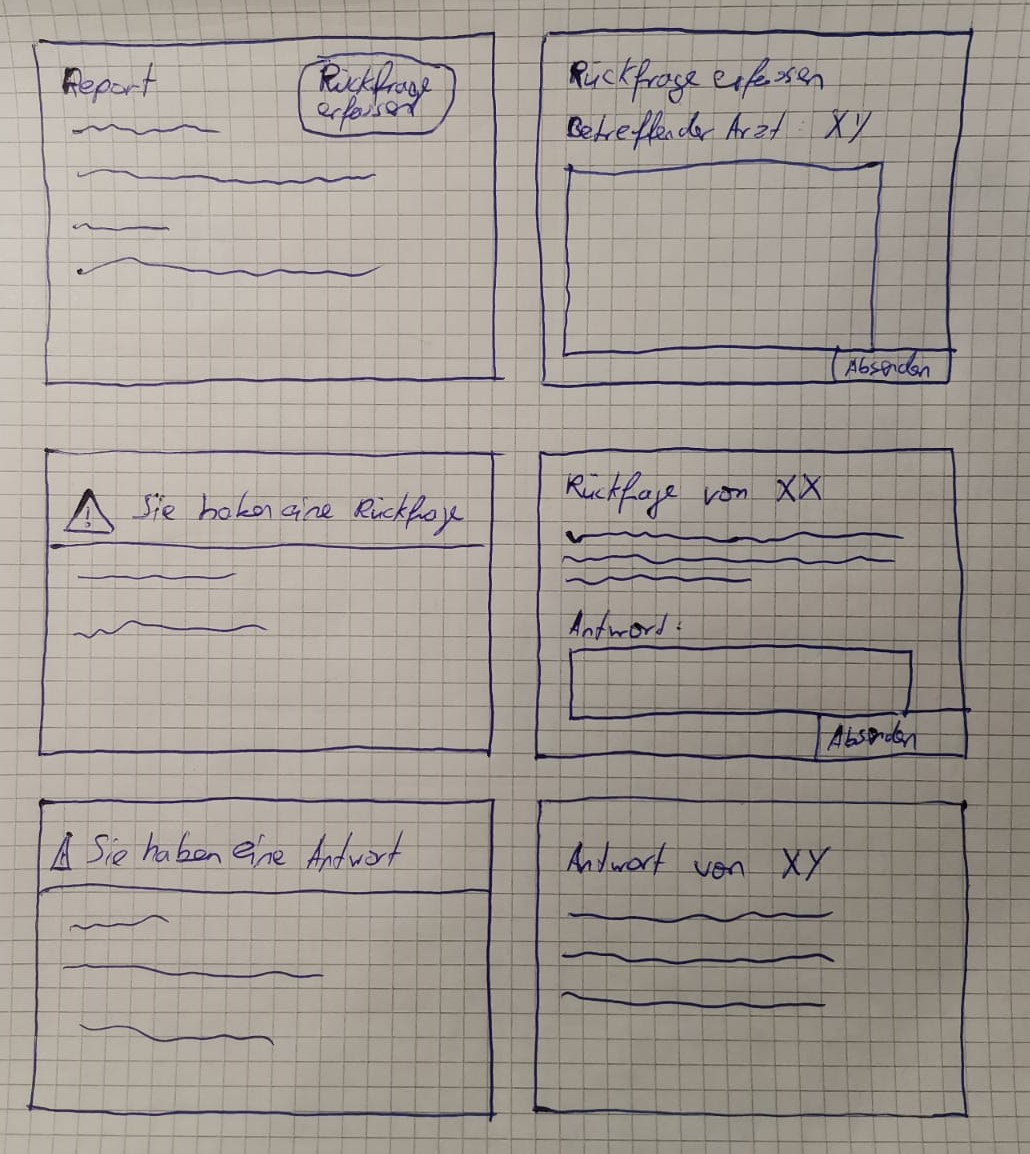 Report
Rückfrage
erfassen
Rückfrage erfassen
Betreffender Arzt: XY
Absenden
Sie haben eine Rückfrage
Rückfrage von XX
Antword:
Absenden
Sie haben eine Antwort
Antwort von XY